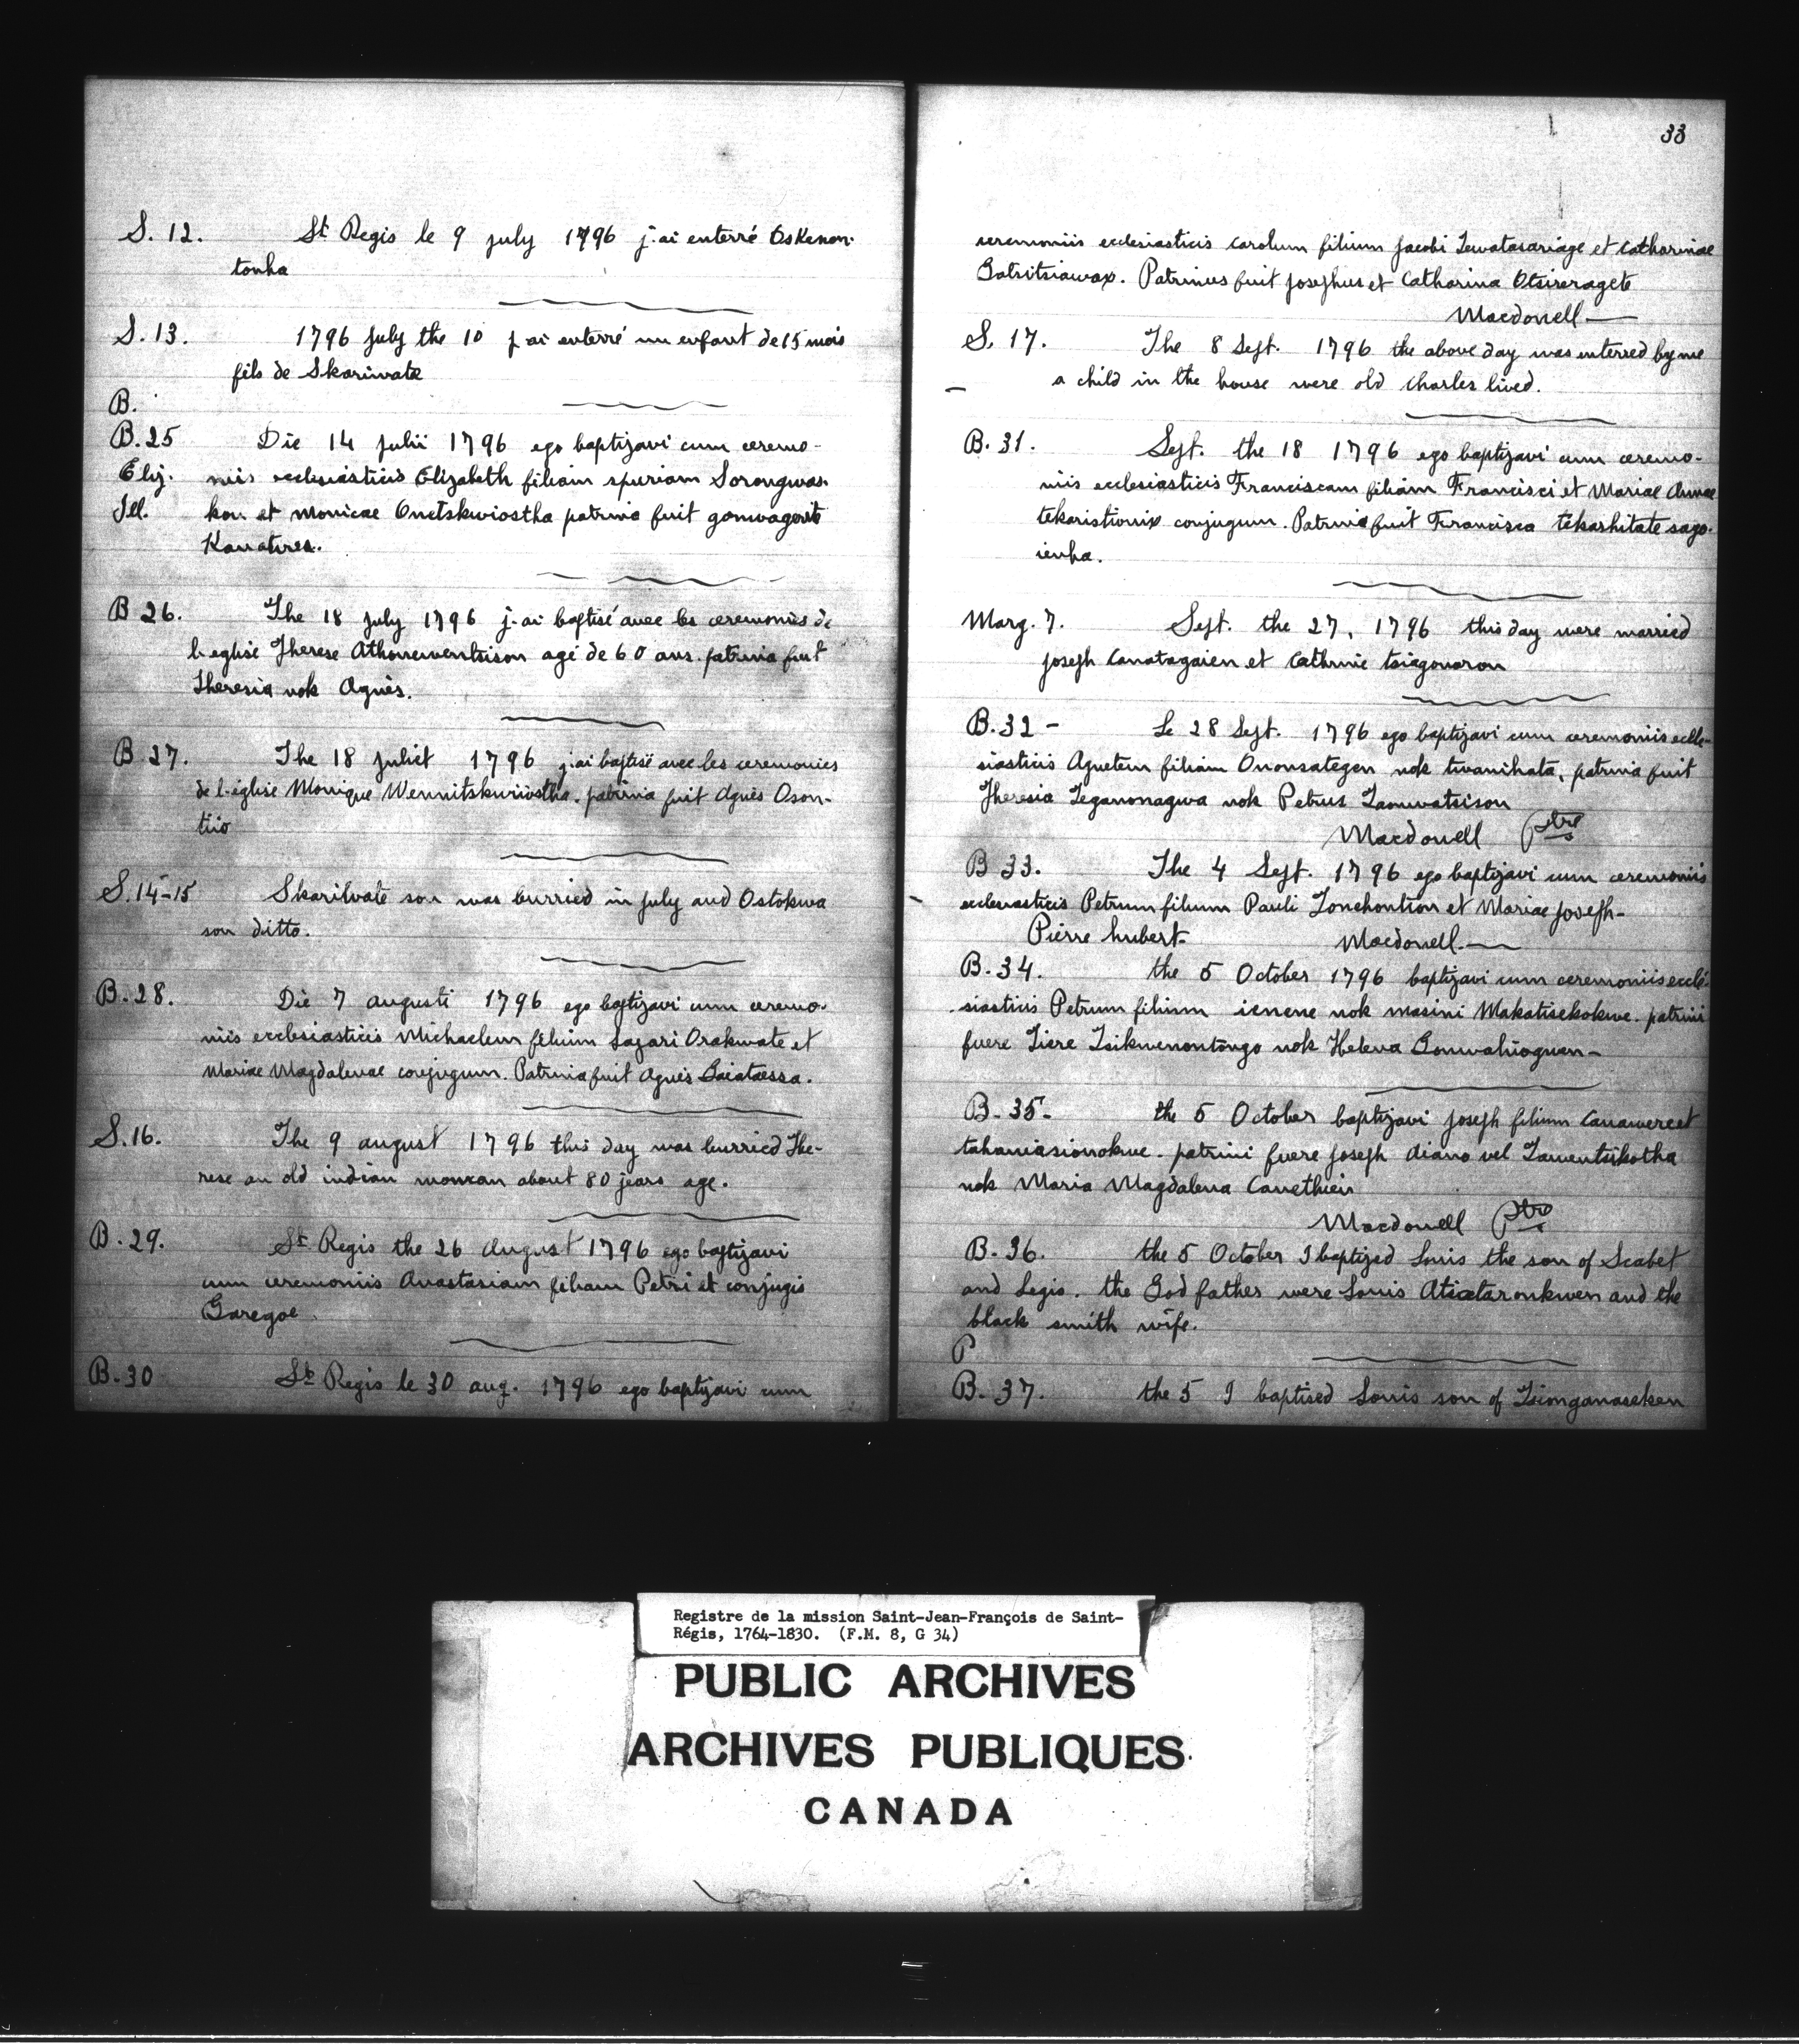 S. 12. St Regis le 9 july 1796 j'ai enterré Oskenon-
tonha
S. 13. 1796 july the 10 j'ai enterré un enfant de 15 mois
fils de Skariwate
B.
B. 25 Die 14 julii 1796 ego baptizavi cum ceremo-
Eliz. niis ecclesiasticis Elizabeth filiam spuriam Sorongwas-
Ill. kon et monicae Onetskwiostha patrina fuit gonwagorit
Kanatires.
B 26. The 18 july 1796 j'ai baptisé avec les ceremonies de
l'eglise Therese Athonwentsison agé de 60 ans. patrina fuit
Theresia nok Agnès.
B 27. The 18 juliet 1796 j'ai baptisé avec les ceremonies
de l'église Monique Wennitskwiiostha. patrina fuit Agnès Oson-
tiio
S. 14-15 Skarilvate son was burried in july and Ostokwa
son ditto.
B. 28. Die 7 augusti 1796 ego baptizavi cum ceremo-
niis ecclesiasticis Michaelem filium Lazari Orakwate et
Mariae Magdalenae conjugum. Patrina fuit Agnès Gaiataessa.
S. 16. The 9 august 1796 this day was burried The-
rese an old indian woman about 80 jears age.
B. 29. St Regis the 26 August 1796 ego baptizavi
cum ceremoniis Anastasiam filiam Petri et conjugis
Garegoe.
B. 30 St Regis le 30 aug. 1796 ego baptizavi cum
33
ceremoniis ecclesiasticis carolum filium jacobi Tewatasariage et catharinae
Gatsitsiawax. Patrinus fuit josephus et Catharina Otsireragete
Macdonell
S. 17. The 8 Sept. 1796 the above day was enterred by me
a child in the house were old Charles lived.
B. 31. Sept. the 18 1796 ego baptizavi cum ceremo-
niis ecclesiasticis Franciscam filiam Francisci et Mariae Annae
tekaristionix conjugum. Patrina fuit Francisca tekashitate sago-
ienha.
Marg. 7. Sept. the 27, 1796 this day were married
joseph Canatagaien et Cathrine tsiagouaron
B. 32 - Le 28 Sept. 1796 ego baptizavi cum ceremoniis eccle-
siasticis Agnetem filiam Ononsategen nok twanihata, patrina fuit
Theresia Teganonagwa nok Petrus Taonwatsison
Macdonell Ptre
B 33. The 4 Sept. 1796 ego baptizavi cum ceremoniis
ecclesiasticis Petrum filium Pauli Tonchontion et Mariae joseph-
Pierre hubert. Macdonell.
B. 34. the 5 October 1796 baptizavi cum ceremoniis eccle-
siasticis Petrum filium ienene nok masini Makatisekokwe. patrini
fuere Tiere Tsikwenontongo nok Helena Gonwahioguen-
B. 35 - the 5 October baptizavi joseph filium Canawere et
tahaniasionokwe. patrini fuere joseph diano vel Tawentsikotha
nok Maria Magdalena Canethien
Macdonell Ptre
B. 36. the 5 October I baptized Louis the son of Scabet
and Legis. the God father were Louis Atiataronkwen and the
black smith wife.
P
B. 37. the 5 I baptised Louis son of Tsionganaseken
Registre de la mission Saint-Jean-François de Saint-
Régis, 1764-1830. (F.M. 8, G 34)
PUBLIC ARCHIVES
ARCHIVES PUBLIQUES
CANADA